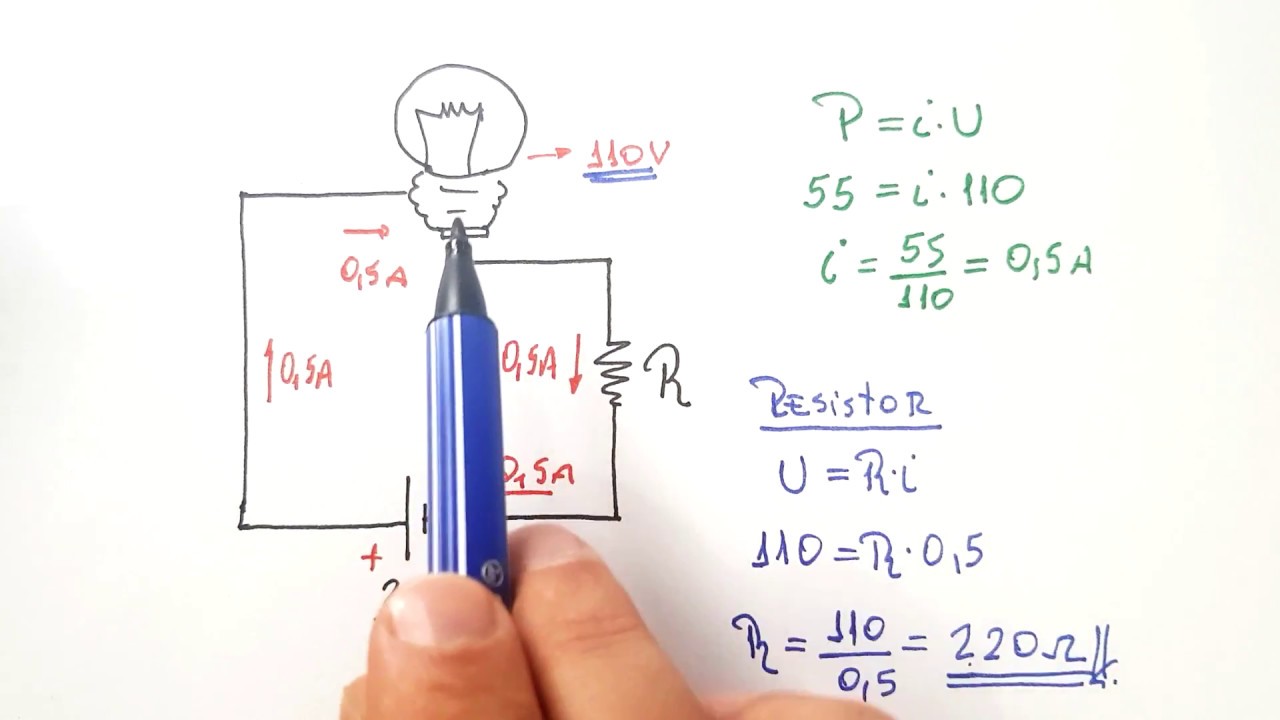 110V
0,5A
0,5A
0,5A
0,5A
R
+
P = i·U
55 = i·110
i = 55/110 = 0,5A
RESistoR
U = R·i
110 = R·0,5
R = 110/0,5 = 220Ω//